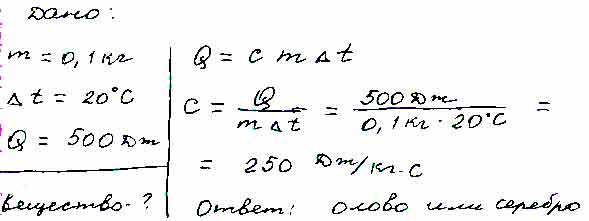 Дано:
m = 0,1 кг
Δt = 20°C
Q = 500 Дж
вещество-?
Q = c m Δt
c = Q / m Δt = 500 Дж / 0,1 кг · 20°C =
= 250 Дж/кг·С
Ответ: олово или серебро